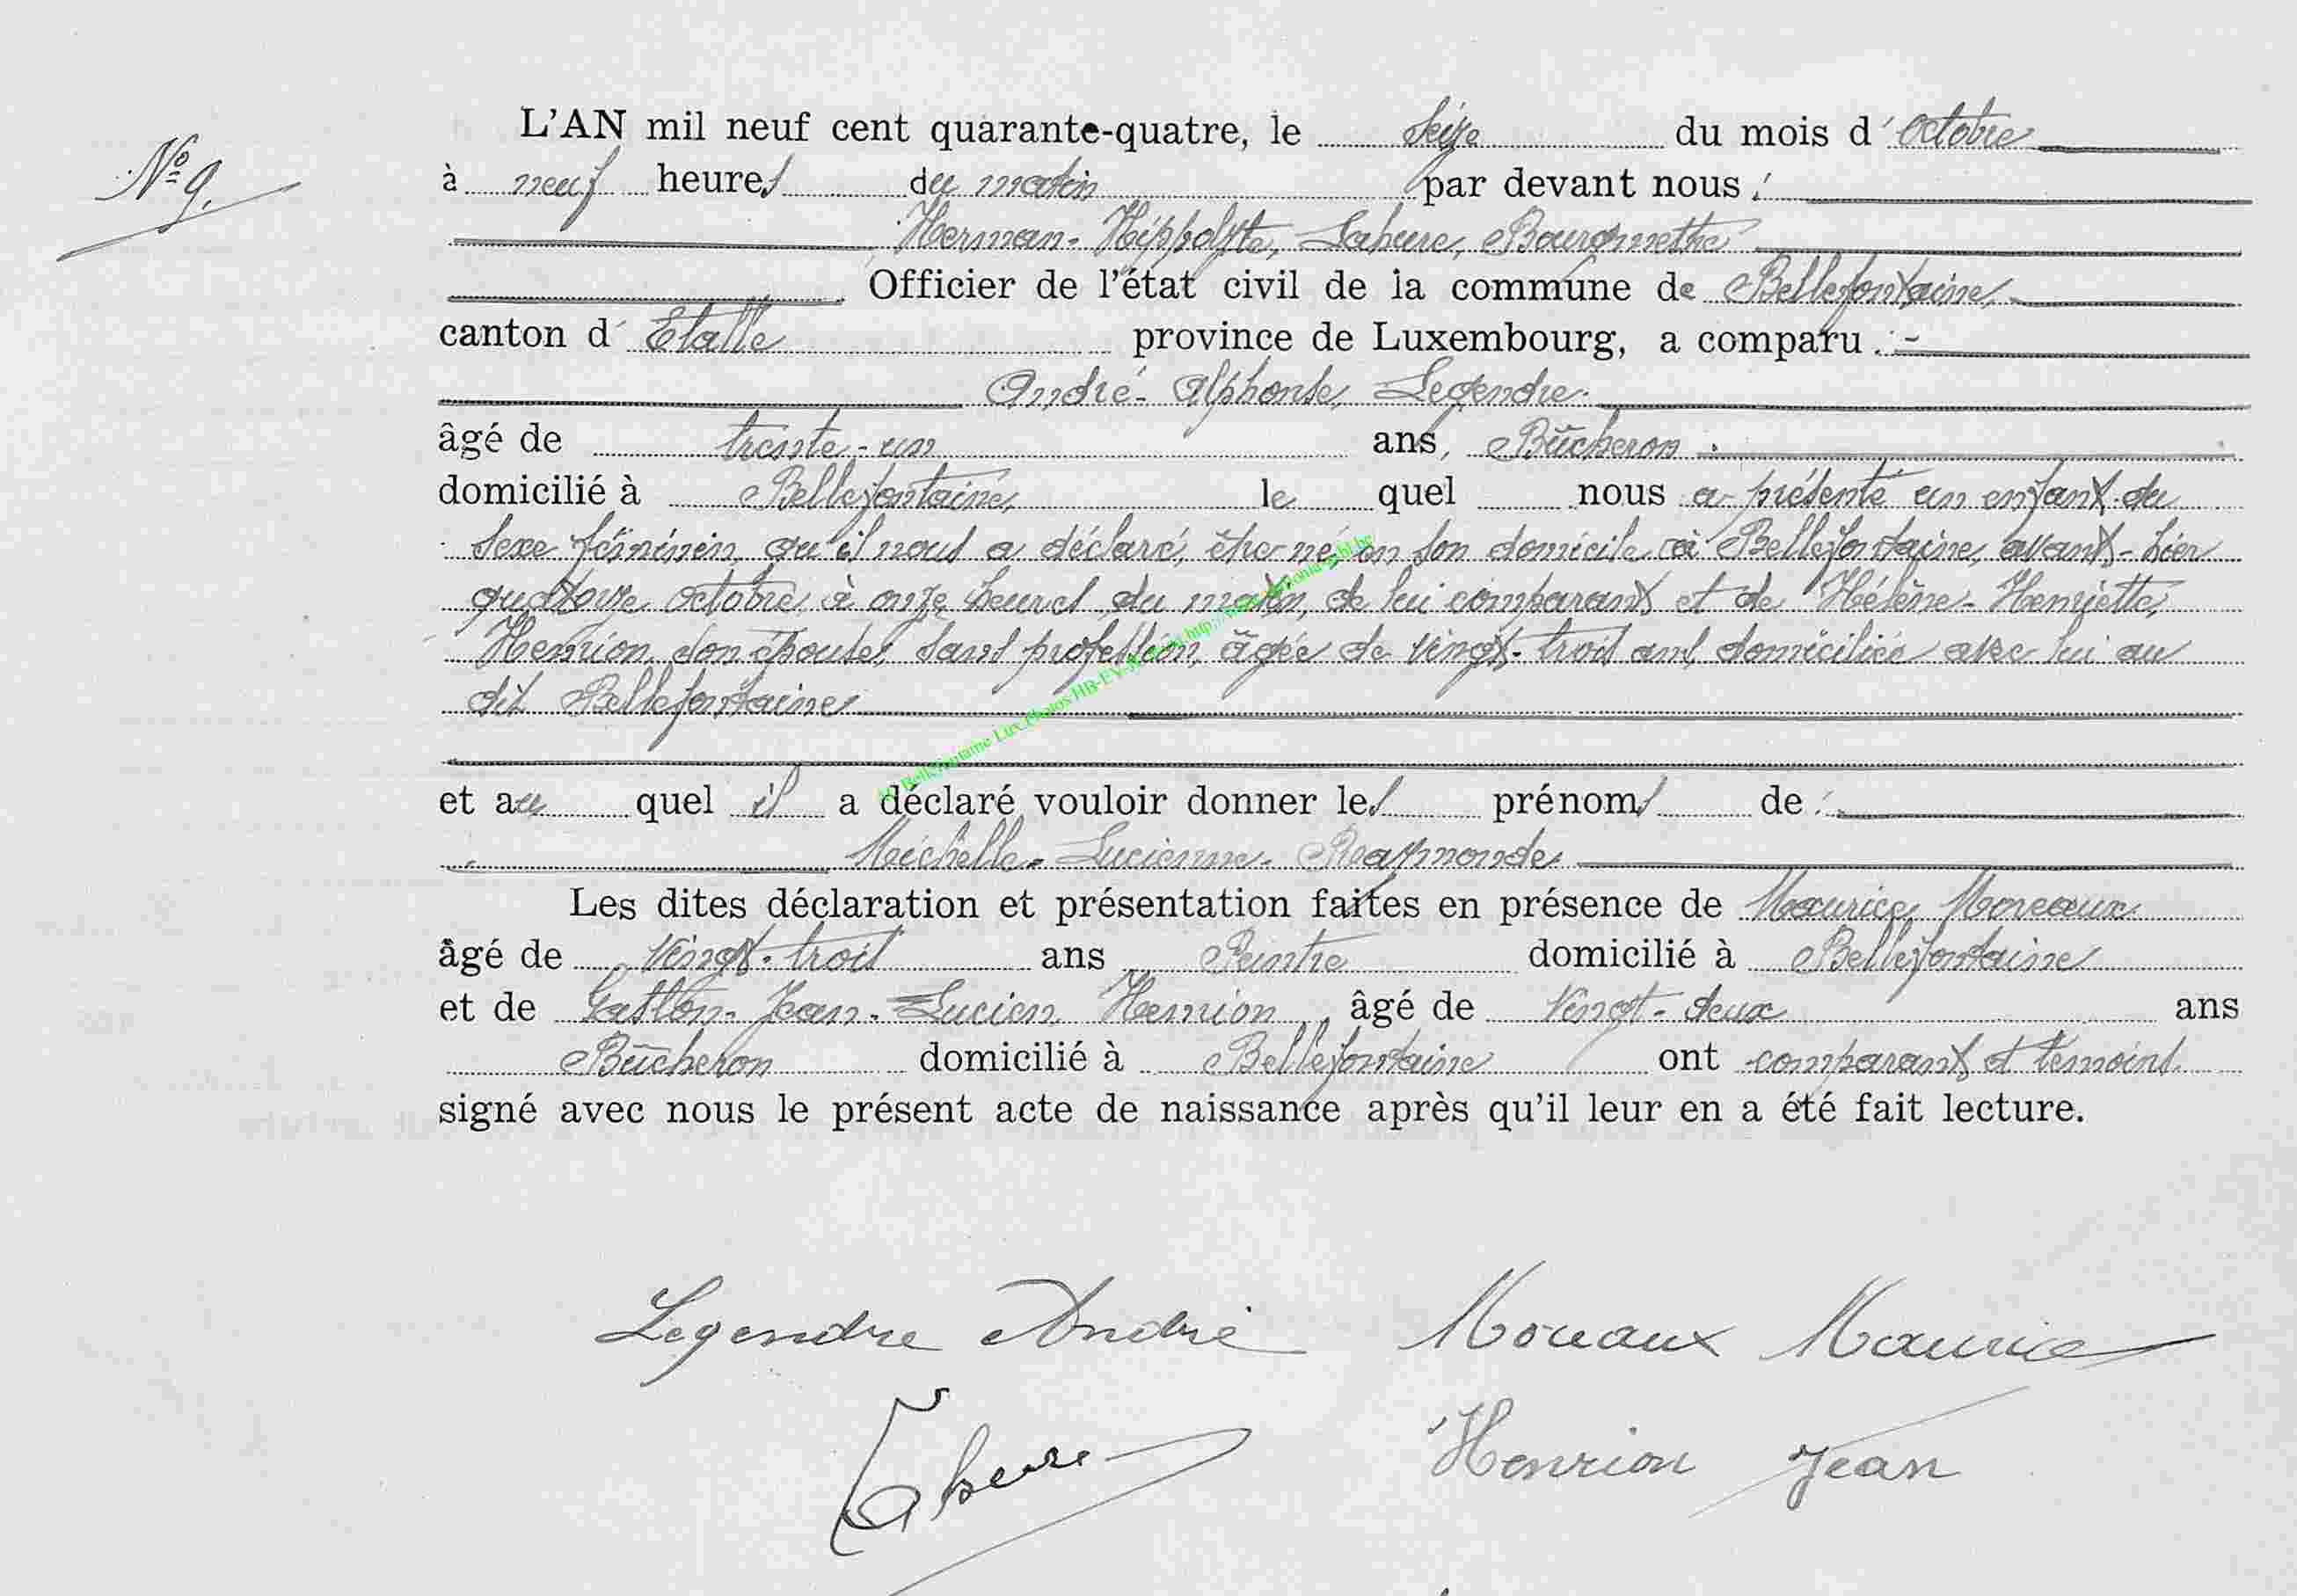 N° 9.
L'AN mil neuf cent quarante-quatre, le seize du mois d'octobre
à neuf heures du matin par devant nous :
Herman-Hippolyte, Lahure, Bourgmestre
Officier de l'état civil de la commune de Bellefontaine,
canton d'Etalle province de Luxembourg, a comparu :-
André-Alphonse, Legendre.
âgé de trente-un ans, Bûcheron.
domicilié à Bellefontaine, lequel nous a présenté un enfant du
sexe féminin, qu'il nous a déclaré, être né, en son domicile à Bellefontaine, avant-hier
quatorze octobre à onze heures du matin, de lui comparant et de Hélène-Henriette,
Henrion, son épouse, sans profession, âgée de vingt-trois ans, domiciliée avec lui au
dit Bellefontaine
et auquel il a déclaré vouloir donner les prénoms de :
Michelle-Lucienne-Raymonde.
Les dites déclaration et présentation faites en présence de Maurice, Moreaux
âgé de vingt-trois ans Peintre domicilié à Bellefontaine
et de Gaston-Jean-Lucien, Henrion, âgé de vingt-deux ans
Bûcheron domicilié à Bellefontaine ont comparant et témoins
signé avec nous le présent acte de naissance après qu'il leur en a été fait lecture.
Legendre André Moreaux Maurice
Lahure Henrion Jean